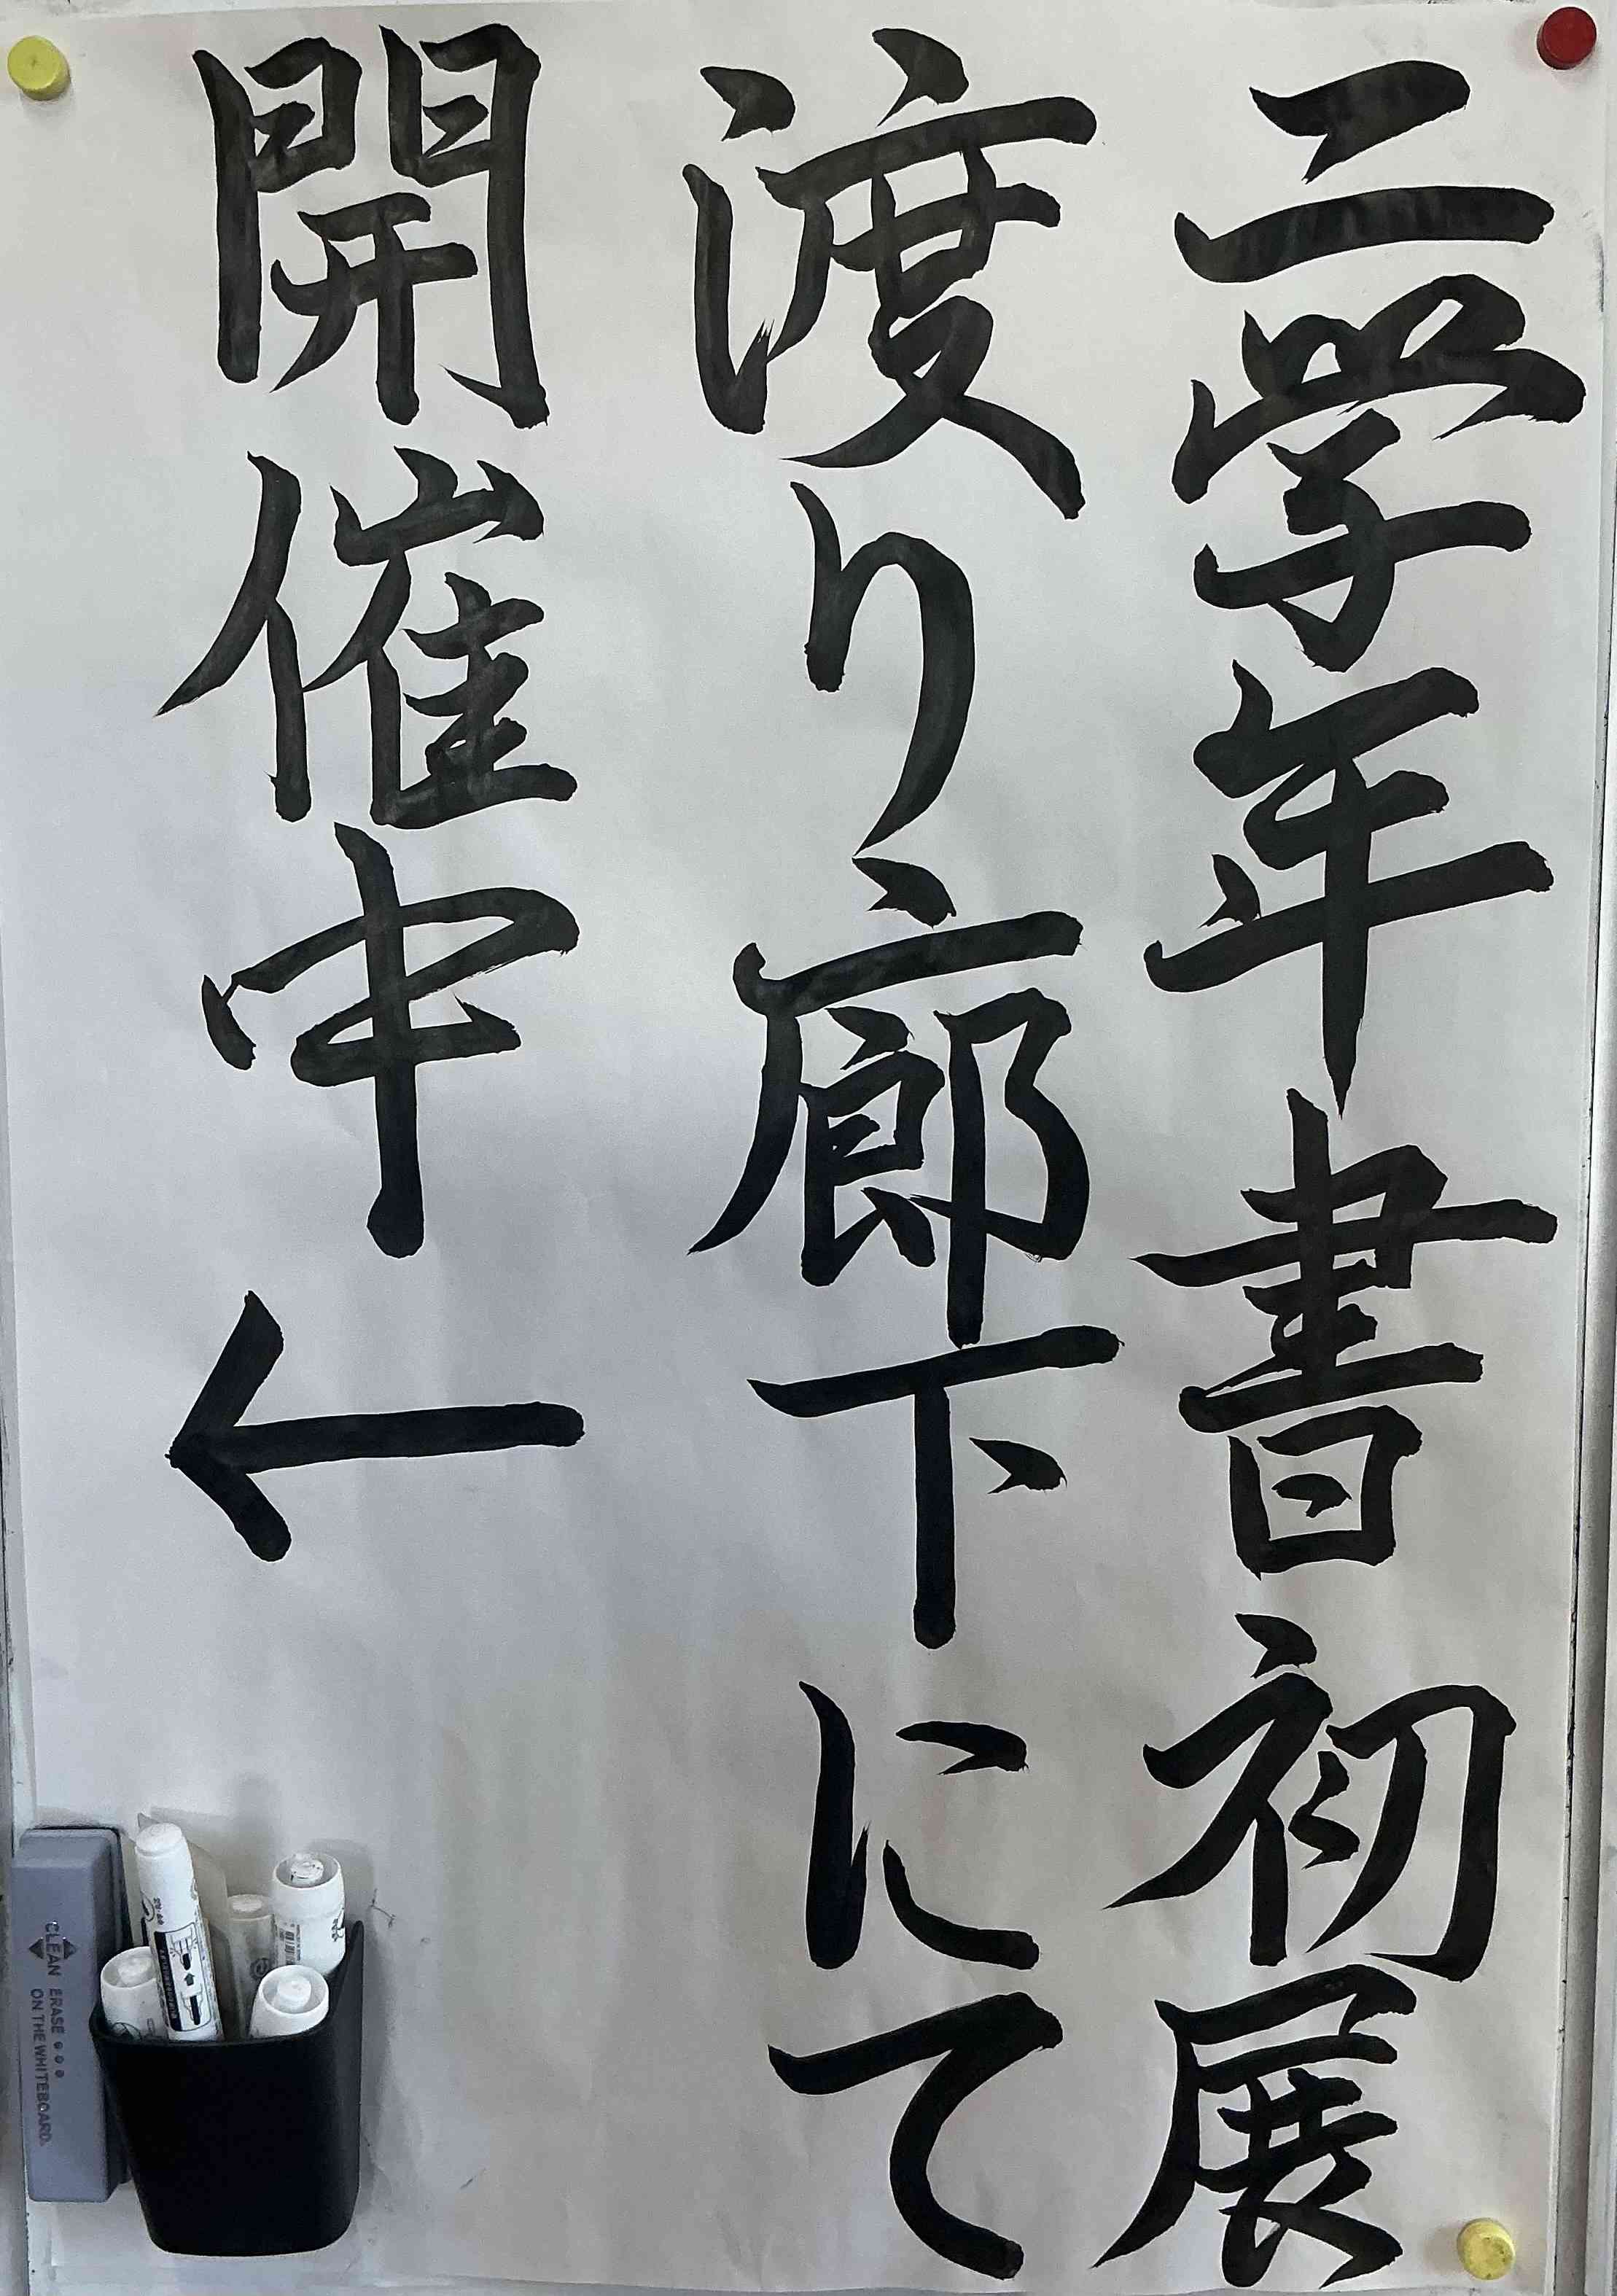 二学年書初展
渡り廊下にて
開催中←
CLEAN ERASE
ON THE WHITEBOARD.